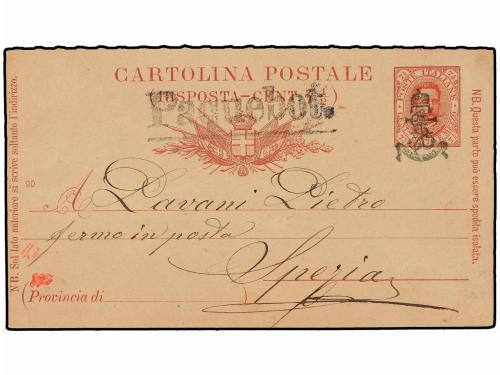 CARTOLINA POSTALE
(RISPOSTA - CENT. 7½)
Paquebot.
POSTE ITALIANE
90
A Pavani Pietro
fermo in posta
Spezia
(Provincia di
NB. Sul lato anteriore si scrive soltanto l'indirizzo.
NB. Questa parte può essere spedita isolata.